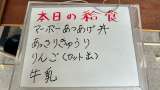 本日の給食
マーボーあつあげ丼
あっさりきゅうり
りんご(カット済)
牛乳